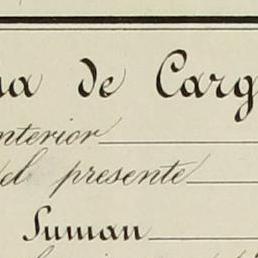 de Carg
nterior
el presente
Suman